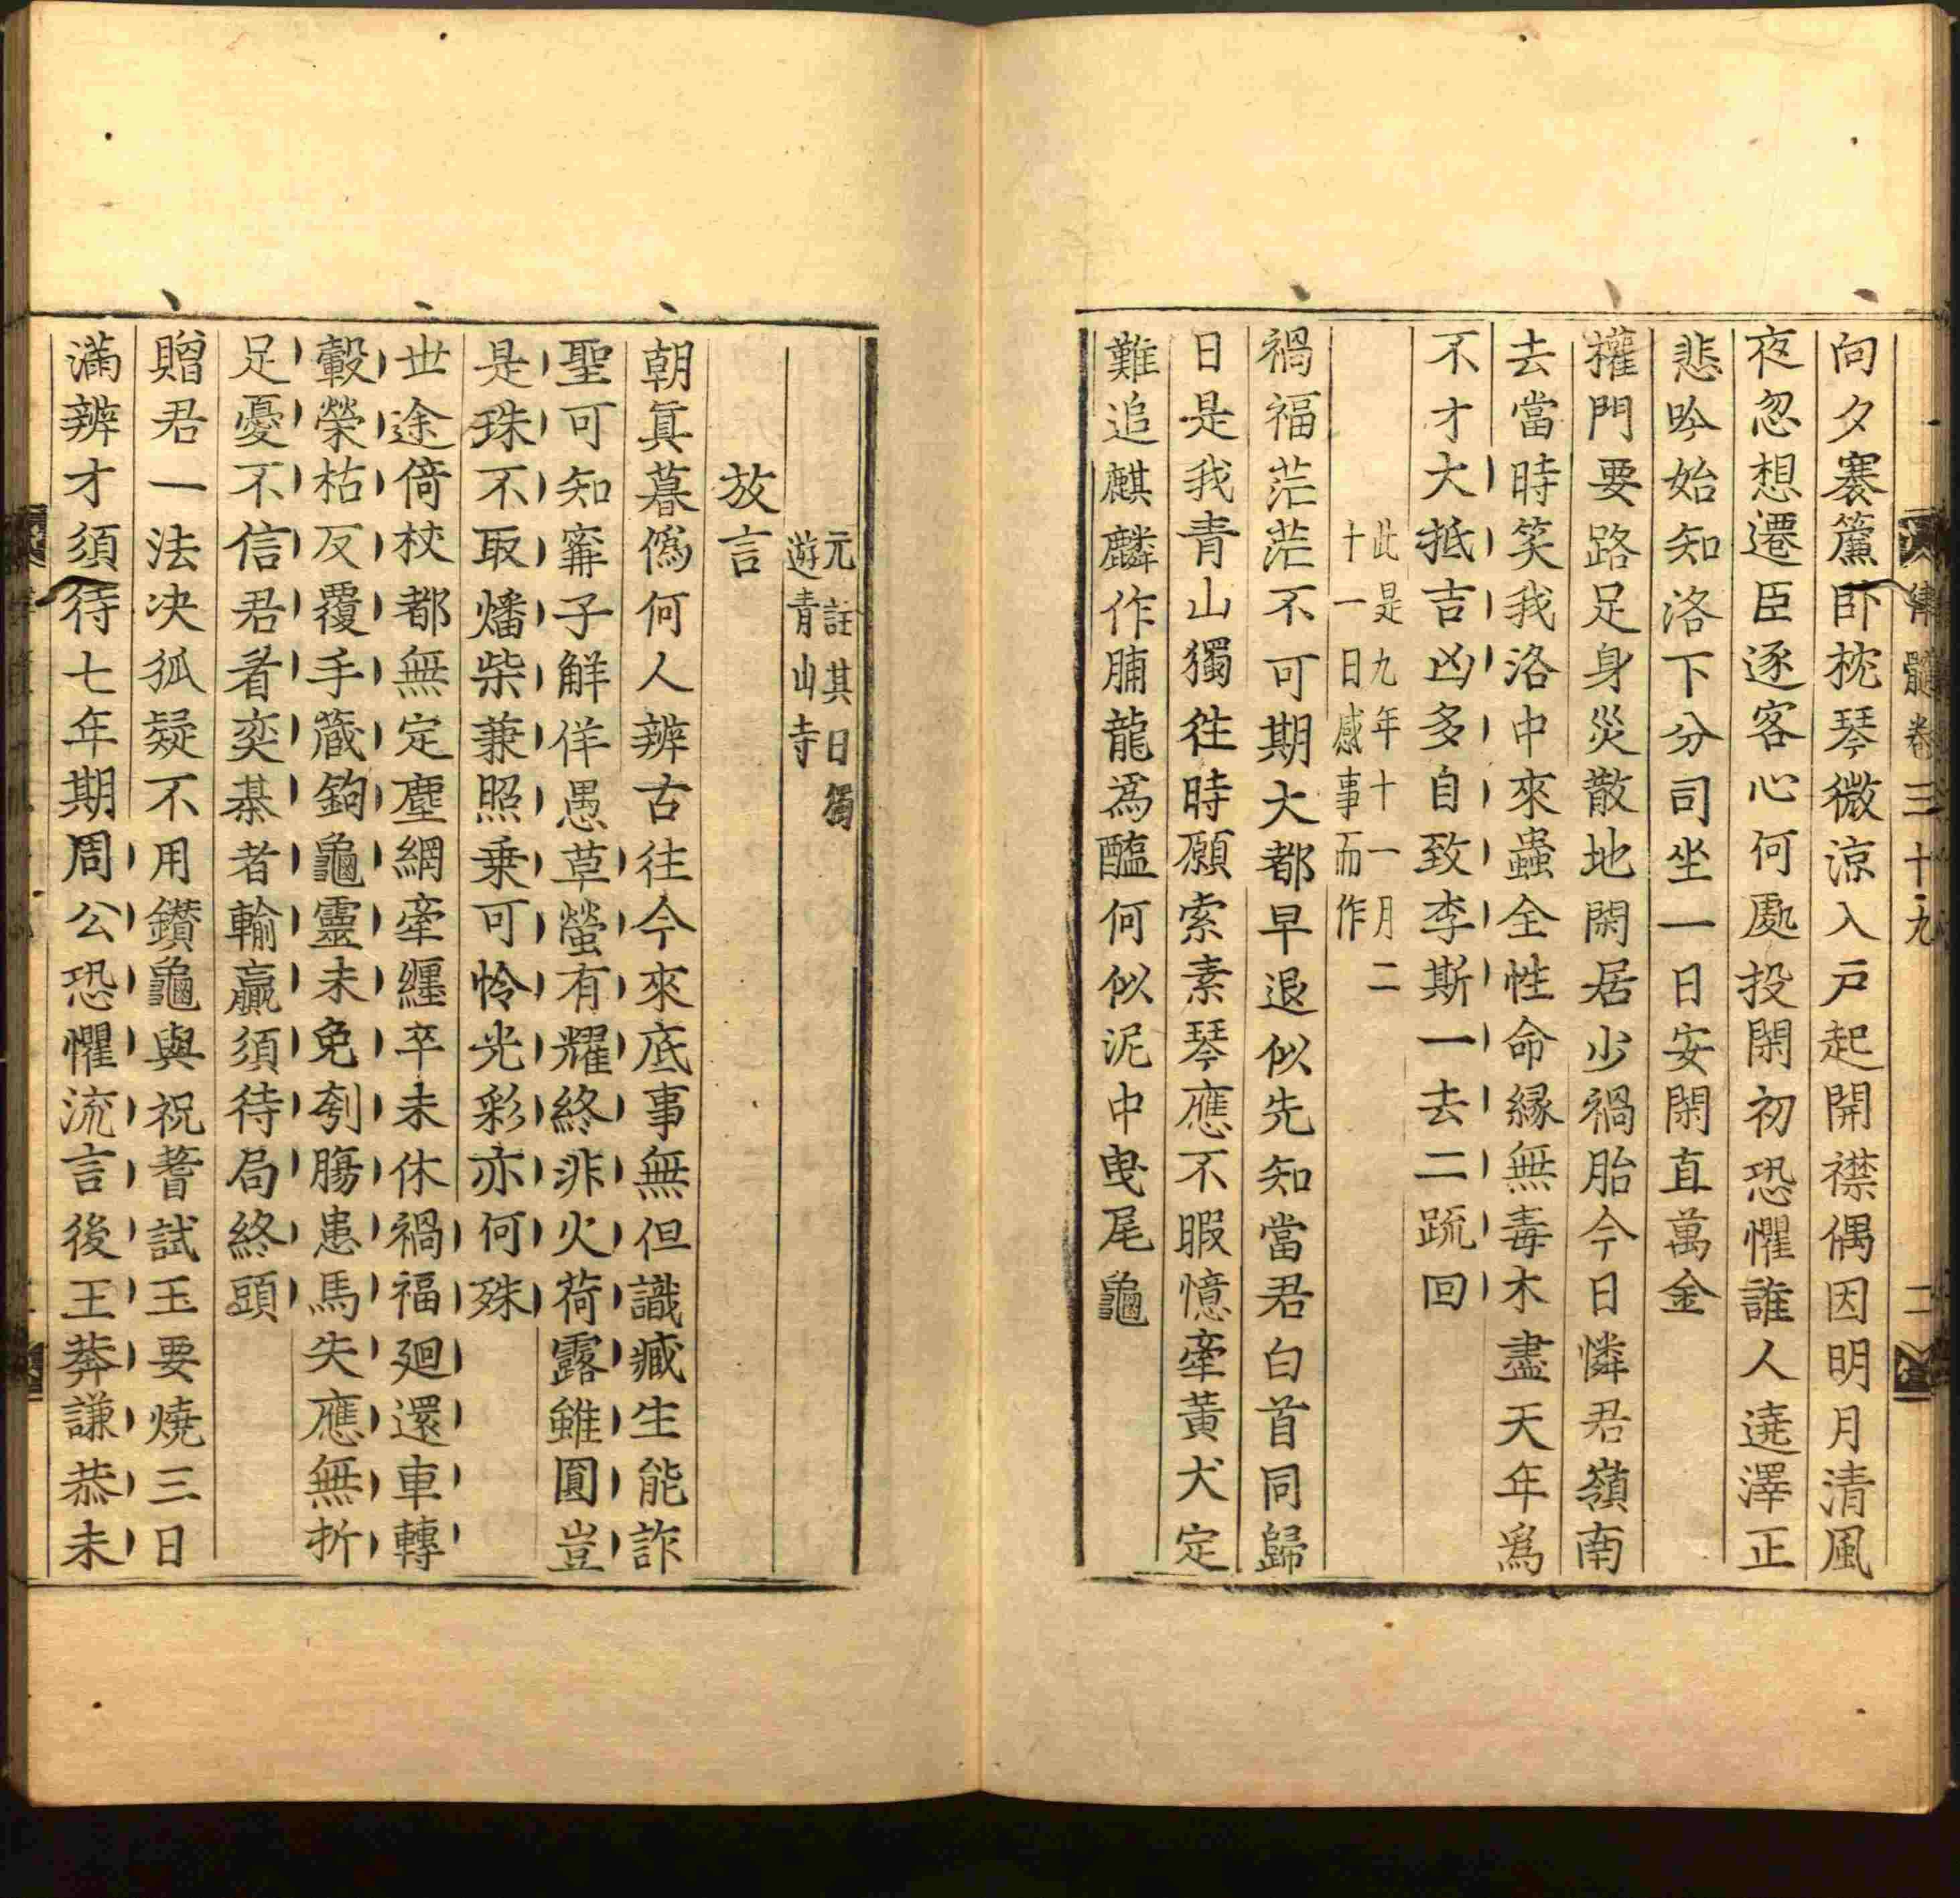 律髓卷三十九 二
向夕褰簾卧枕琴微涼入戶起開襟偶因明月清風
夜忽想遷臣逐客心何處投閑初恐懼誰人遶澤正
悲吟始知洛下分司坐一日安閑直萬金
權門要路足身災散地閑居少禍胎今日憐君嶺南
去當時笑我洛中來蟲全性命緣無毒木盡天年爲
不才大抵吉凶多自致李斯一去二疏回
此是九年十一月二
十一日感事而作
禍福茫茫不可期大都早退似先知當君白首同歸
日是我青山獨往時顧索素琴應不暇憶牽黃犬定
難追麒麟作脯龍爲醢何似泥中曳尾龜
元註其日獨
遊青山寺
放言
朝眞暮僞何人辨古往今來底事無但識臧生能詐
聖可知甯子解佯愚草螢有耀終非火荷露雖圓豈
是珠不取燔柴兼照乗可怜光彩亦何殊
世途倚校都無定塵網牽纏卒未休禍福廻還車轉
轂榮枯反覆手藏鉤龜靈未免刳腸患馬失應無折
足憂不信君看奕棊者輸贏須待局終頭
贈君一法决狐疑不用鑽龜與祝蓍試玉要燒三日
滿辨才須待七年期周公恐懼流言後王莽謙恭未